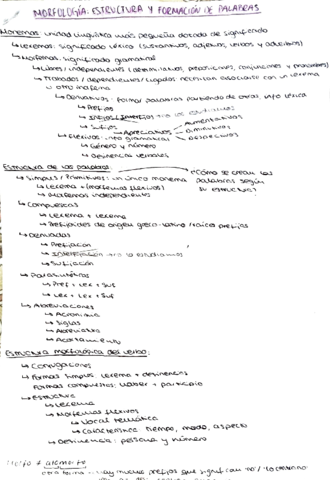 MORFOLOGÍA: ESTRUCTURA Y FORMACIÓN DE PALABRAS
Monemas: unidad lingüística más pequeña dotada de significado
↳ Lexemas: significado léxico (sustantivos, adjetivos, verbos y adverbios)
↳ Morfemas: significado gramatical
↳ Libres / independientes (determinativos, preposiciones, conjunciones y pronombres)
↳ Trabados / dependientes / ligados: necesitan asociarse con un lexema
u otro morfema
↳ Derivativos: formar palabras partiendo de otras, info léxica
↳ Prefijos
↳ Infijos / Interfijos
↳ Sufijos → Apreciativos
Aumentativos
Diminutivos
Despectivos
↳ Flexivos: info gramatical
↳ Género y número
↳ Desinencias verbales
Estructura de las palabras
¿Cómo se crean las
palabras según
su estructura?
↳ Simples / Primitivas: un único monema
↳ Lexema + (morfemas flexivos)
↳ Morfemas independientes
↳ Compuestas
↳ Lexema + lexema
↳ de origen greco-latino / raíces prefijas
↳ Derivadas
↳ Prefijación
↳ Interfijación no la estudiamos
↳ Sufijación
↳ Parasintéticas
↳ Pref + Lex + Suf
↳ Lex + Lex + Suf
↳ Abreviaciones
↳ Acronimia
↳ Siglas
↳ Abreviatura
↳ Acortamiento
Estructura morfológica del verbo:
↳ Conjugaciones
↳ Formas simples: lexema + desinencias
Formas compuestas: haber + participio
↳ Estructura
↳ Lexema
↳ Morfemas flexivos
↳ Vocal temática
↳ Característica: tiempo, modo, aspecto
↳ Desinencia: persona y número
hay muchos prefijos que significan no / lo contrario